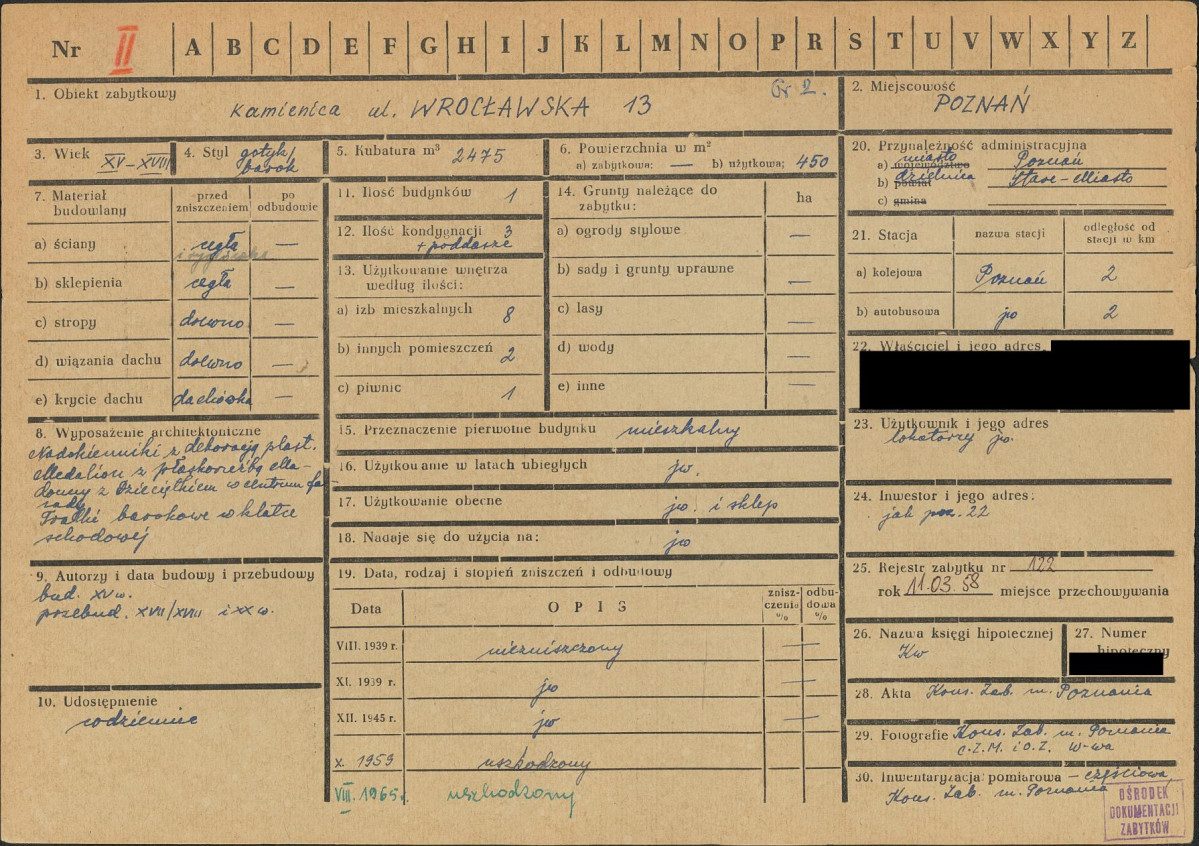 Nr II A B C D E F G H I J K L M N O P R S T U V W X Y Z
1. Obiekt zabytkowy
Kamienica ul. WROCŁAWSKA 13
Gr 2.
2. Miejscowość
POZNAŃ
3. Wiek XV–XVIII
4. Styl gotyk/
barok
5. Kubatura m³ 2475
6. Powierzchnia w m²
a) zabytkowa: — b) użytkowa: 450
7. Materiał budowlany
przed zniszczeniem
po odbudowie
a) ściany cegła —
i
b) sklepienia cegła —
c) stropy drewno —
d) wiązania dachu drewno —
e) krycie dachu dachówka —
8. Wyposażenie architektoniczne
Nadokienniki z dekoracją plast.
Medalion z płaskorzeźbą Ma-
donny z Dzieciątkiem w centrum fa-
sady
Tralki barokowe w klatce
schodowej
9. Autorzy i data budowy i przebudowy
bud. XV w.
przebud. XVII/XVIII i XX w.
10. Udostępnienie
codziennie
11. Ilość budynków 1
12. Ilość kondygnacji 3
+ poddasze
13. Użytkowanie wnętrza
według ilości:
a) izb mieszkalnych 8
b) innych pomieszczeń 2
c) piwnic 1
14. Grunty należące do
zabytku:
ha
a) ogrody stylowe —
b) sady i grunty uprawne —
c) lasy —
d) wody —
e) inne —
15. Przeznaczenie pierwotne budynku mieszkalny
16. Użytkowanie w latach ubiegłych jw.
17. Użytkowanie obecne jw. i sklep
18. Nadaje się do użycia na: jw
19. Data, rodzaj i stopień zniszczeń i odbudowy
Data OPIS zniszczenia % odbudowa %
VIII. 1939 r. niezniszczony —
XI. 1939 r. jw —
XII. 1945 r. jw —
X. 1959 uszkodzony
VIII. 1965 r. uszkodzony
20. Przynależność administracyjna
a) województwo miasto Poznań
b) powiat dzielnica Stare-Miasto
c) gmina
21. Stacja
nazwa stacji
odległość od
stacji w km
a) kolejowa Poznań 2
b) autobusowa jw 2
22. Właściciel i jego adres
23. Użytkownik i jego adres
lokatorzy jw.
24. Inwestor i jego adres:
jak poz. 22
25. Rejestr zabytku nr 122
rok 11.03.58 miejsce przechowywania
26. Nazwa księgi hipotecznej
Kw
27. Numer
hipoteczny
28. Akta Kons. Zab. m. Poznania
29. Fotografie Kons. Zab. m. Poznania
C.Z.M. i O.Z. W-wa
30. Inwentaryzacja pomiarowa – częściowa
Kons. Zab. m. Poznania
OŚRODEK
DOKUMENTACJI
ZABYTKÓW